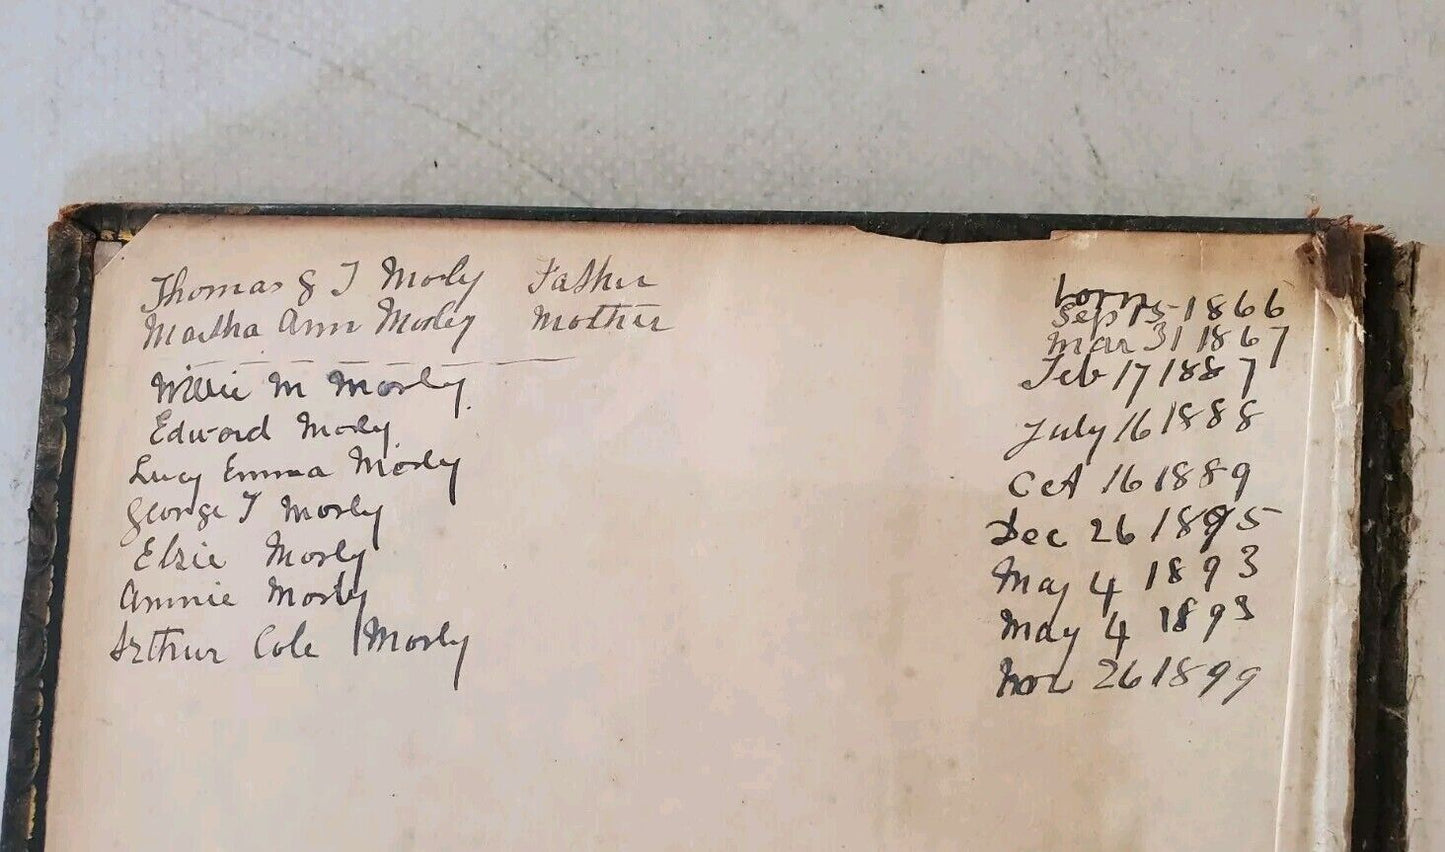 Thomas & T Mosly Father born Sep 15 1866
Martha Ann Mosley Mother Mar 31 1867
Willie M Mosly Feb 17 1887
Edward Mosly July 16 1888
Lucy Emma Mosly Oct 16 1889
George T Mosly Dec 26 1895
Elsie Mosly May 4 1893
Annie Mosly May 4 1893
Arthur Cole Mosly Nov 26 1899